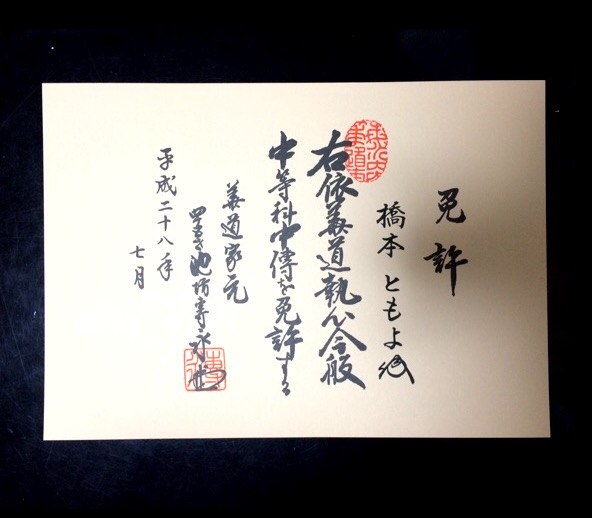 免許
橋本 ともよ殿
右依華道執心今般
中等科中傳を免許する
華道家元
池坊専永
平成二十八年
七月